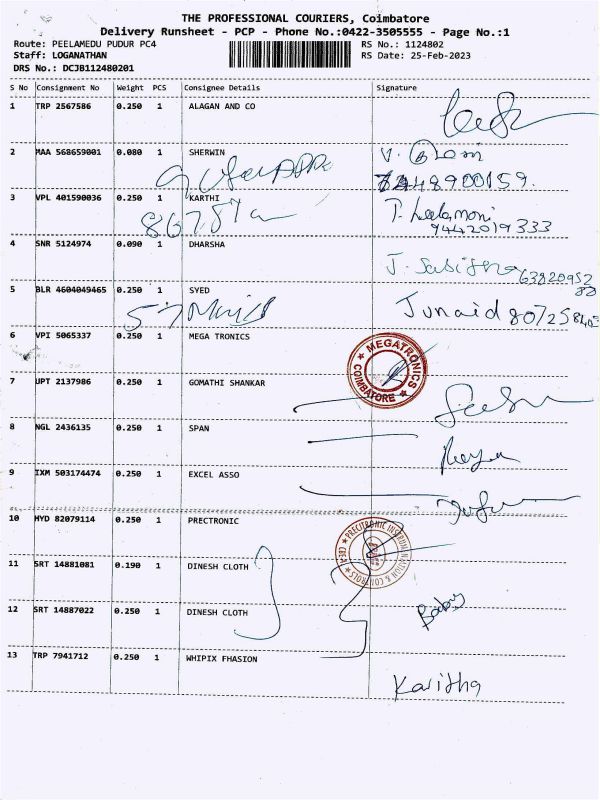 THE PROFESSIONAL COURIERS, Coimbatore
Delivery Runsheet - PCP - Phone No.:0422-3505555 - Page No.:1
Route: PEELAMEDU PUDUR PC4
RS No.: 1124802
Staff: LOGANATHAN
RS Date: 25-Feb-2023
DRS No.: DCJB112480201
S No Consignment No Weight PCS Consignee Details Signature
1 TRP 2567586 0.250 1 ALAGAN AND CO
2 MAA 568659001 0.080 1 SHERWIN V.
3 VPL 401590036 0.250 1 KARTHI P. Leelamoni
9442019333
4 SNR 5124974 0.090 1 DHARSHA J.
63820952
88
5 BLR 4604049465 0.250 1 SYED Junaid
6 VPI 5065337 0.250 1 MEGA TRONICS MEGATRONICS COIMBATORE
7 UPT 2137986 0.250 1 GOMATHI SHANKAR
8 NGL 2436135 0.250 1 SPAN
9 IXM 503174474 0.250 1 EXCEL ASSO
10 HYD 82079114 0.250 1 PRECTRONIC PRECITRONIC INSTRUMENTATION & CONTROLS CBE
11 SRT 14881081 0.190 1 DINESH CLOTH
12 SRT 14887022 0.250 1 DINESH CLOTH Baby
13 TRP 7941712 0.250 1 WHIPIX FHASION
Kavitha